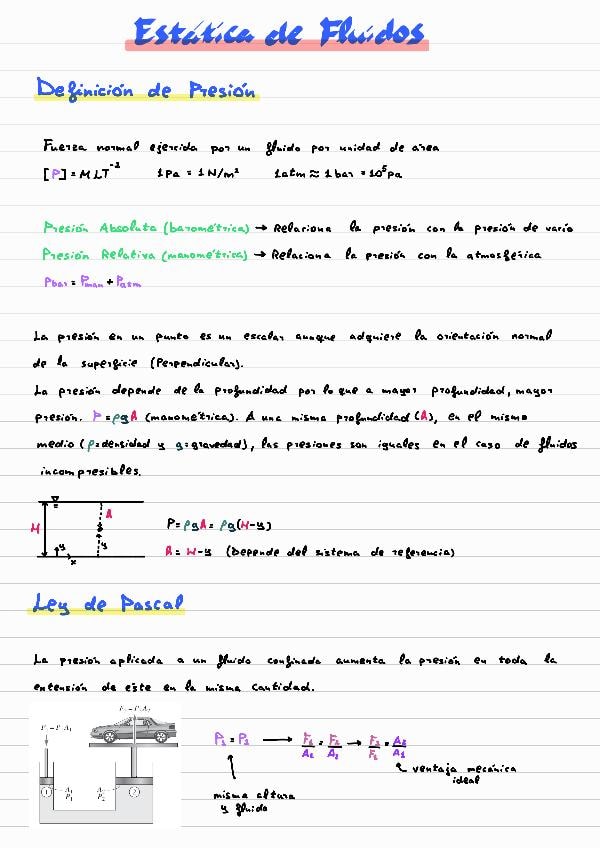 Estática de Fluidos
Definición de Presión
Fuerza normal ejercida por un fluido por unidad de area
[P] = MLT⁻² 1Pa = 1N/m² 1atm ≈ 1bar = 10⁵Pa
Presión Absoluta (barométrica) → Relaciona la presión con la presión de vario
Presión Relativa (manométrica) → Relaciona la presión con la atmosférica
Pbar = Pman + Patm
La presión en un punto es un escalar aunque adquiere la orientación normal
de la superficie (Perpendicular).
La presión depende de la profundidad por lo que a mayor profundidad, mayor
presión. P = ρgA (manométrica). A una misma profundidad (A), en el mismo
medio (ρ=densidad y g=gravedad), las presiones son iguales en el caso de fluidos
incompresibles.
H A y y x
P = ρgA = ρg(H-y)
A = H-y (Depende del sistema de referencia)
Ley de Pascal
La presión aplicada a un fluido confinado aumenta la presión en toda la
extensión de este en la misma cantidad.
F₂ = P₂A₂
F₁ = P₁A₁
A₁ P₁ A₂ P₂ 1 2
P₁ = P₂ → F₁/A₁ = F₂/A₂ → F₂/F₁ = A₂/A₁
ventaja mecánica
ideal
misma altura
y fluido